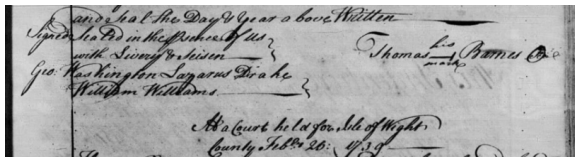 and Seal the Day & Year above Written
Signed Sealed in the presence of us
with Livery & Seisen
Thomas his mark Barnes
Geo: Washington Lazarus Drake
William Williams
At a Court held for Isle of Wight
County Feb:ry 26: 1739